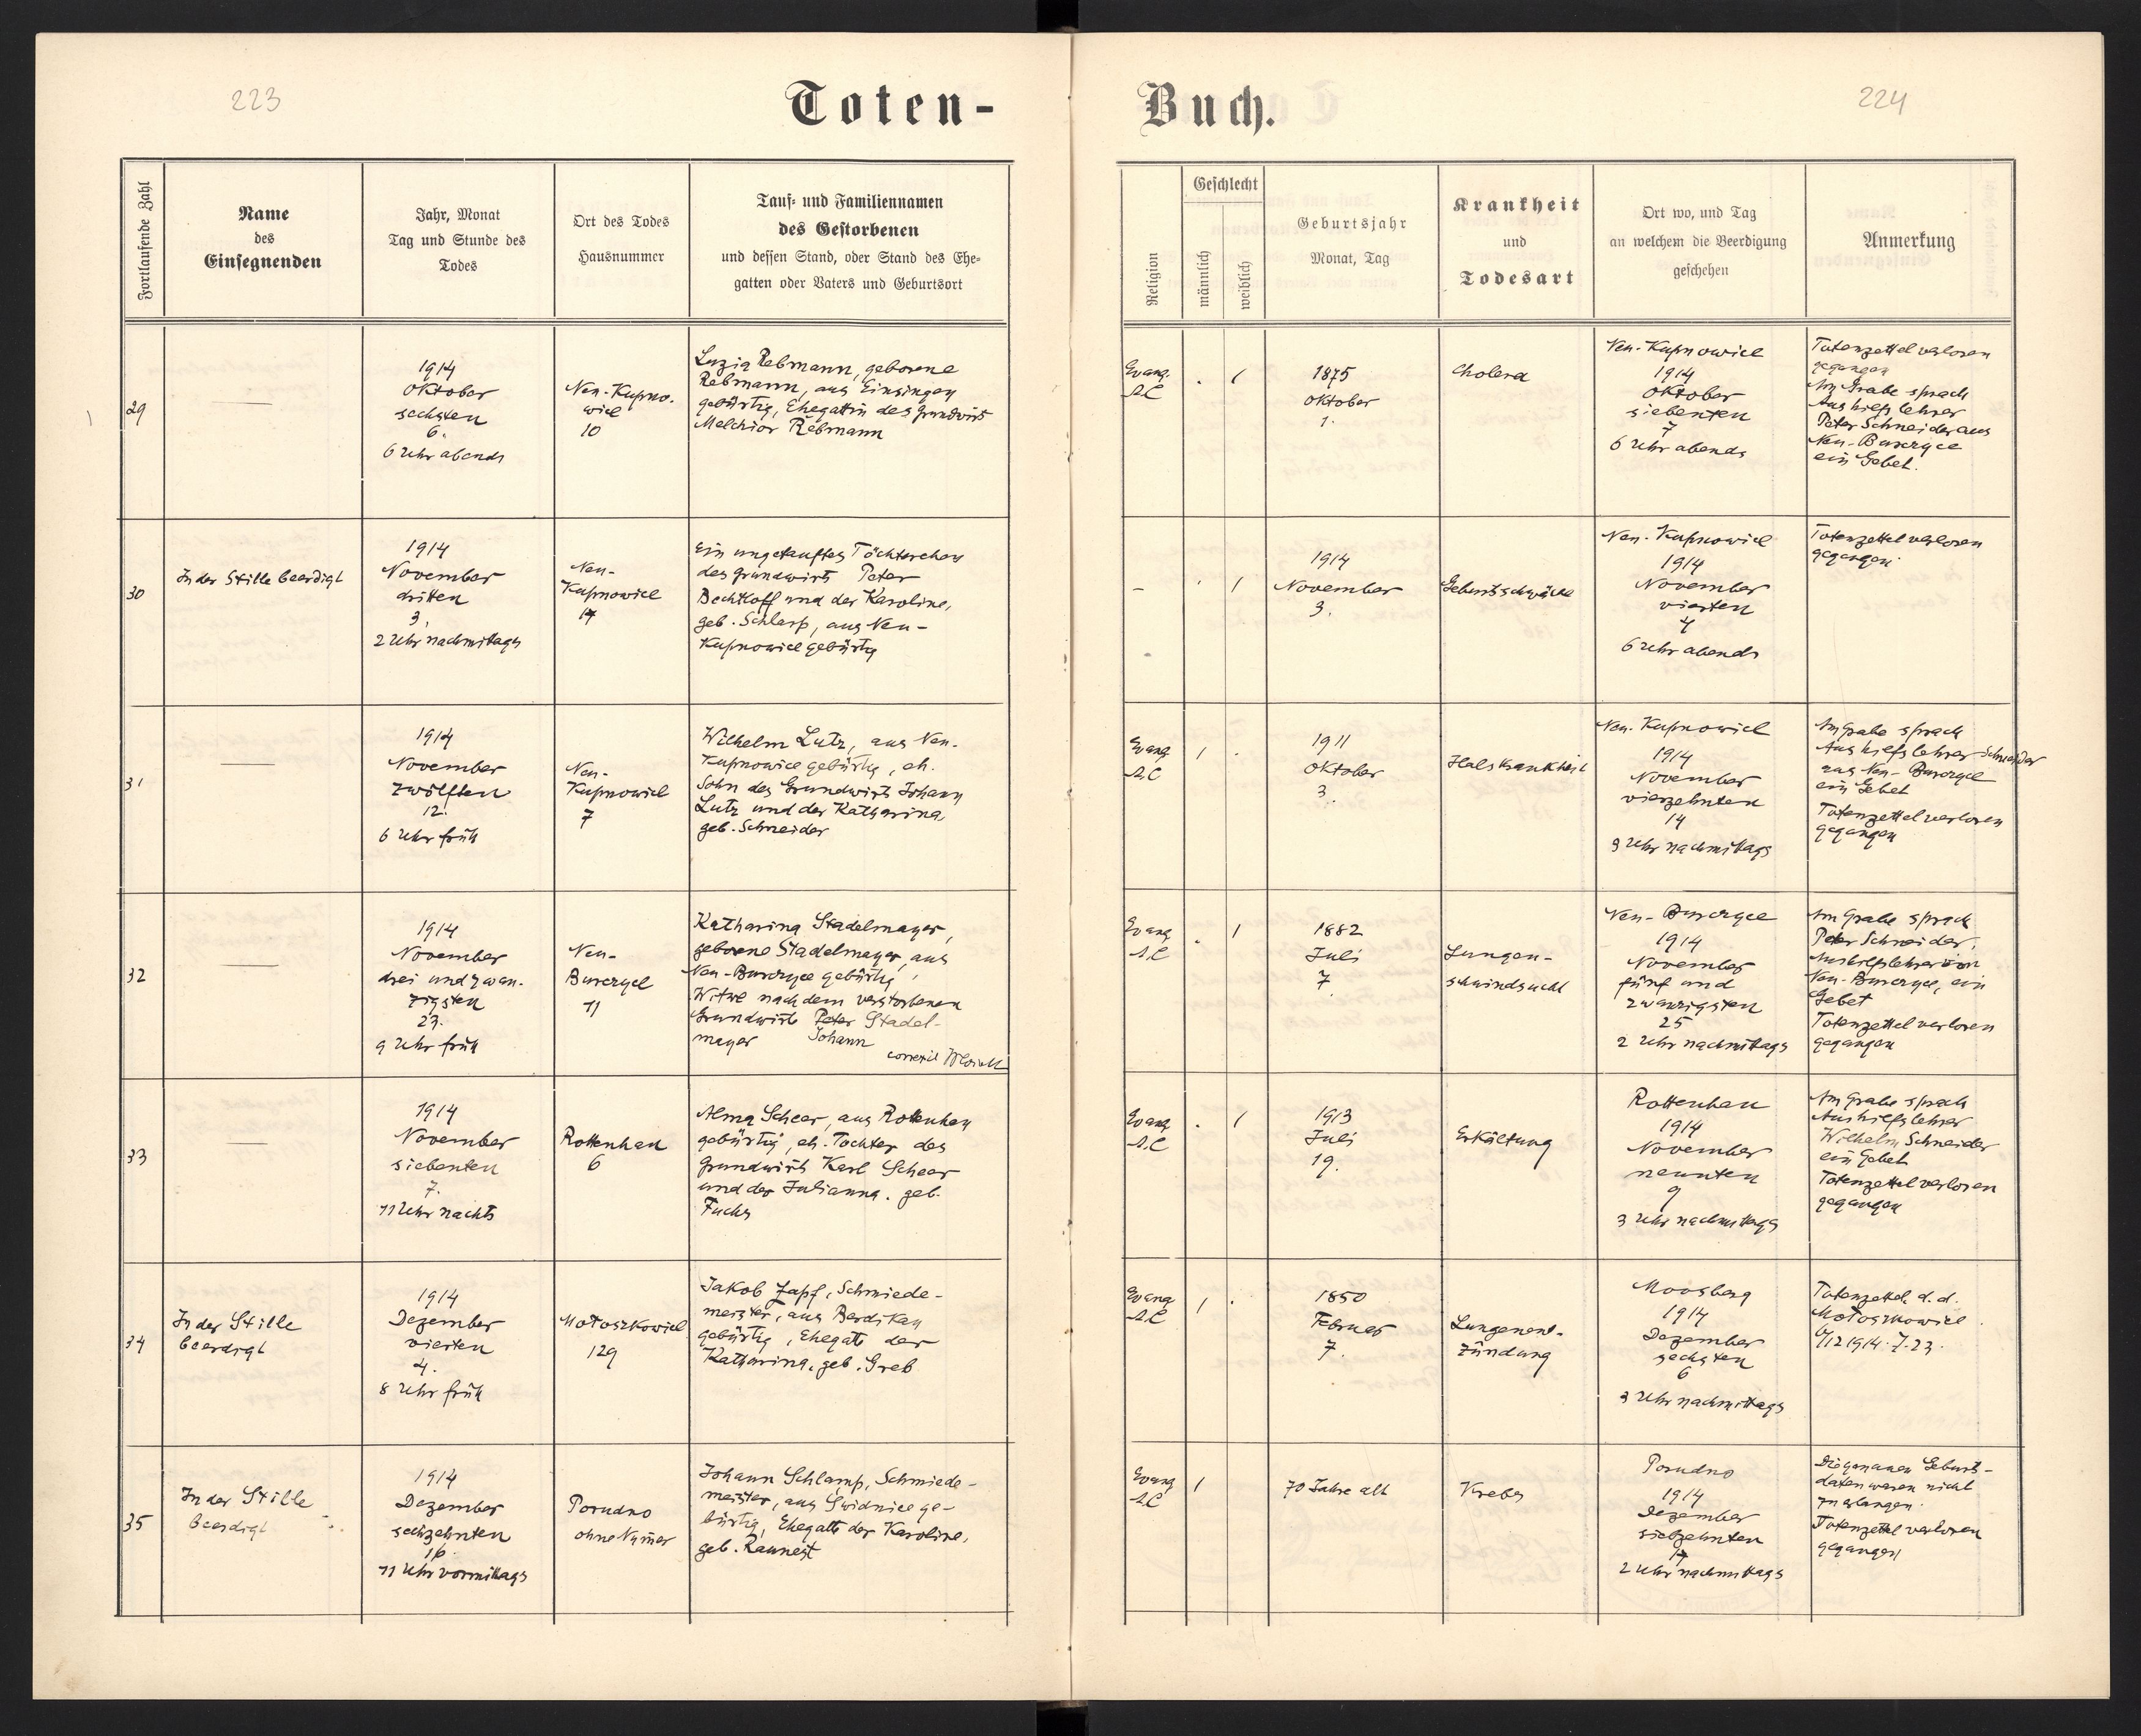 223
Toten-
Fortlaufende Zahl
Name
des
Einsegnenden
Jahr, Monat
Tag und Stunde des
Todes
Ort des Todes
Hausnummer
Tauf- und Familiennamen
des Gestorbenen
und dessen Stand, oder Stand des Ehe-
gatten oder Vaters und Geburtsort
29
1914
Oktober
sechsten
6.
6 Uhr abends
Neu-Kupno-
wice
10
Luzia Rebmann, geborene
Rebmann, aus Einsingen
gebürtig, Ehegattin des Grundwirts
Melchior Rebmann
30
In der Stille beerdigt
1914
November
dritten
3.
2 Uhr nachmittags
Neu-
Kupnowice
14
Ein ungetauftes Töchterchen
des Grundwirts Peter
Bechtloff und der Karoline,
geb. Schlarp, aus Neu-
Kupnowice gebürtig
31
1914
November
zwölften
12.
6 Uhr früh
Neu-
Kupnowice
7
Wilhelm Lutz, aus Neu-
Kupnowice gebürtig, eh.
Sohn des Grundwirts Johann
Lutz und der Katharina,
geb. Schneider
32
1914
November
drei und zwan-
zigsten
23.
9 Uhr früh
Neu-
Burczyce
11
Katharina Stadelmayer,
geborene Stadelmayer, aus
Neu-Burczyce gebürtig,
Witwe nach dem verstorbenen
Grundwirts Peter Stadel-
mayer Johann
correxit
33
1914
November
siebenten
7.
11 Uhr nachts
Rottenhan
6
Alma Scheer, aus Rottenhan
gebürtig, eh. Tochter des
Grundwirts Karl Scheer
und der Julianna, geb.
Fuchs
34
In der Stille
beerdigt
1914
Dezember
vierten
4.
8 Uhr früh
Motoszkowice
129
Jakob Zapf, Schmiede-
meister, aus Berdikau
gebürtig, Ehegatte der
Katharina, geb. Greb
35
In der Stille
beerdigt
1914
Dezember
sechzehnten
16.
11 Uhr vormittags
Porudno
ohne Nummer
Johann Schlamp, Schmiede-
meister, aus Swidnice ge-
bürtig, Ehegatte der Karoline,
geb. Raunest
224
Buch.
Religion
Geschlecht
männlich
weiblich
Geburtsjahr
Monat, Tag
Krankheit
und
Todesart
Ort wo, und Tag
an welchem die Beerdigung
geschehen
Anmerkung
Evang.
A.C.
1
1875
Oktober
1.
Cholera
Neu-Kupnowice
1914
Oktober
siebenten
7
6 Uhr abends
Totenzettel verloren
gegangen
Am Grabe sprach
Aushilfslehrer
Peter Schneider aus
Neu-Burczyce
ein Gebet.
–
1
1914
November
3.
Geburtsschwäche
Neu-Kupnowice
1914
November
vierten
4
6 Uhr abends
Totenzettel verloren
gegangen
Evang.
A.C.
1
1911
Oktober
3.
Halskrankheit
Neu-Kupnowice
1914
November
vierzehnten
14
3 Uhr nachmittags
Am Grabe sprach
Aushilfslehrer Schneider
aus Neu-Burczyce
ein Gebet
Totenzettel verloren
gegangen
Evang.
A.C.
1
1882
Juli
7
Lungen-
schwindsucht
Neu-Burczyce
1914
November
fünf und
zwanzigsten
25
2 Uhr nachmittags
Am Grabe sprach
Peter Schneider,
Aushilfslehrer von
Neu-Burczyce, ein
Gebet
Totenzettel verloren
gegangen
Evang.
A.C.
1
1913
Juli
19.
Erkältung
Rottenhan
1914
November
neunten
9
3 Uhr nachmittags
Am Grabe sprach
Aushilfslehrer
Wilhelm Schneider
ein Gebet
Totenzettel verloren
gegangen
Evang.
A.C.
1
1850
Februar
7.
Lungenent-
zündung
Moosberg
1914
Dezember
sechsten
6
3 Uhr nachmittags
Totenzettel d. d.
Motoszkowice
6/12 1914. Z. 23.
Evang.
A.C.
1
70 Jahre alt
Krebs
Porudno
1914
Dezember
siebzehnten
17
2 Uhr nachmittags
Die genauen Geburts-
daten waren nicht
zu erlangen.
Totenzettel verloren
gegangen